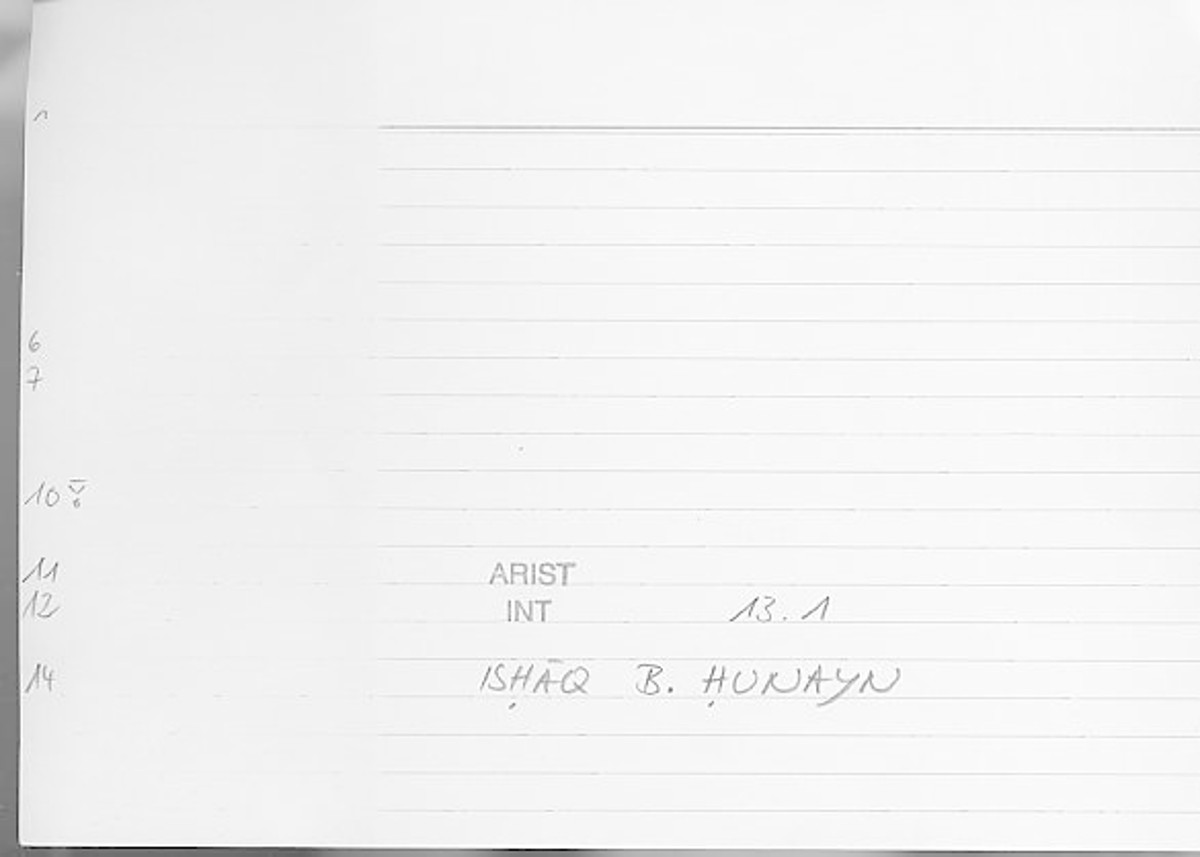 1
6
7
10
11 ARIST
12 INT 13.1
14 ISḤĀQ B. ḤUNAYN